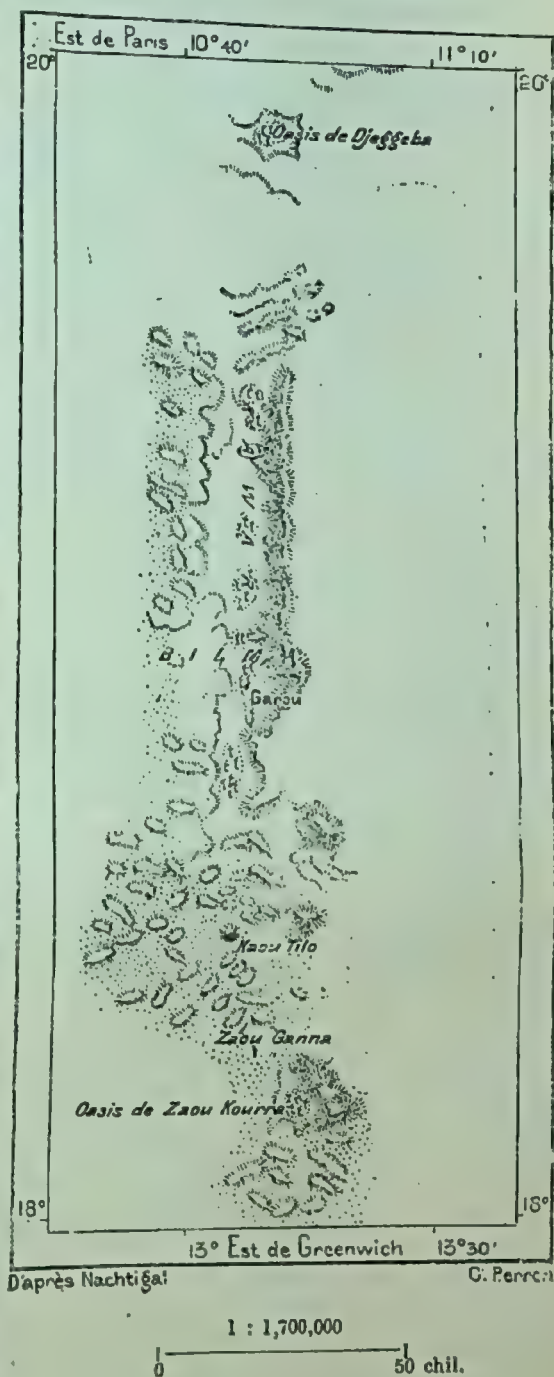 Est de Paris 10°40' 11°10'
20° 20°
Oasis de Djeggeba
Vée M
B I L M A
Garou
Kaou Tilo
Zaou Ganna
Oasis de Zaou Kourra
18° 18°
13° Est de Greenwich 13°30'
D'après Nachtigal C. Perron
1 : 1,700,000
0 50 chil.